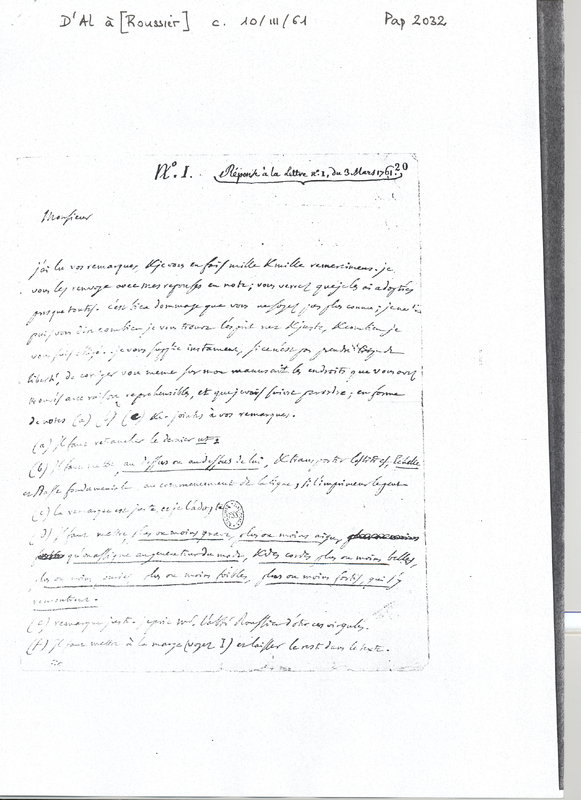 D'Al à [Roussier] c. 10/III/61 Pap 2032
N.º I. Réponse à la Lettre nº 1, du 3 Mars 1761. 20
Monsieur
j'ai lu vos remarques, & je vous en fais mille & mille remercimens. je
vous les renvoye avec mes reponses en note; vous verrez que je les ai adoptées
presque toutes. c'est bien dommage que vous ne soyez pas plus connu; je ne
puis vous dire combien je vous trouve l'esprit net & juste, & combien je
vous fais. je vous supplie instament, si ce n'est pas prendre trop de
liberté, de coriger vous meme sur mon manuscrit les endroits que vous avez
trouvés avec raison reprehensibles, et que je vais suivre par ordre; en forme
de notes (a) (b) (c) &c. jointes à vos remarques.
(a) il faut retrancher le dernier ut.
(b) il faut mettre au dessus ou au dessous de lui, & transporter les titres, Echelle
et Basse fondamentale au commencement de la ligne, s'ils
(c) la remarque est juste, et je l'adopte
(d) il faut mettre, plus ou moins grave, plus ou moins aigu,
qu'musique au ton du mode, & des cordes plus ou moins belles,
plus ou moins, plus ou moins foibles, plus ou moins fortes, qui s'y
rencontrent.
(e) remarque juste. je prie mr. l'abbé Roussier d'ôter ces virgules.
(f) il faut mettre à la marge (voyez I) et laisser le reste dans le texte.